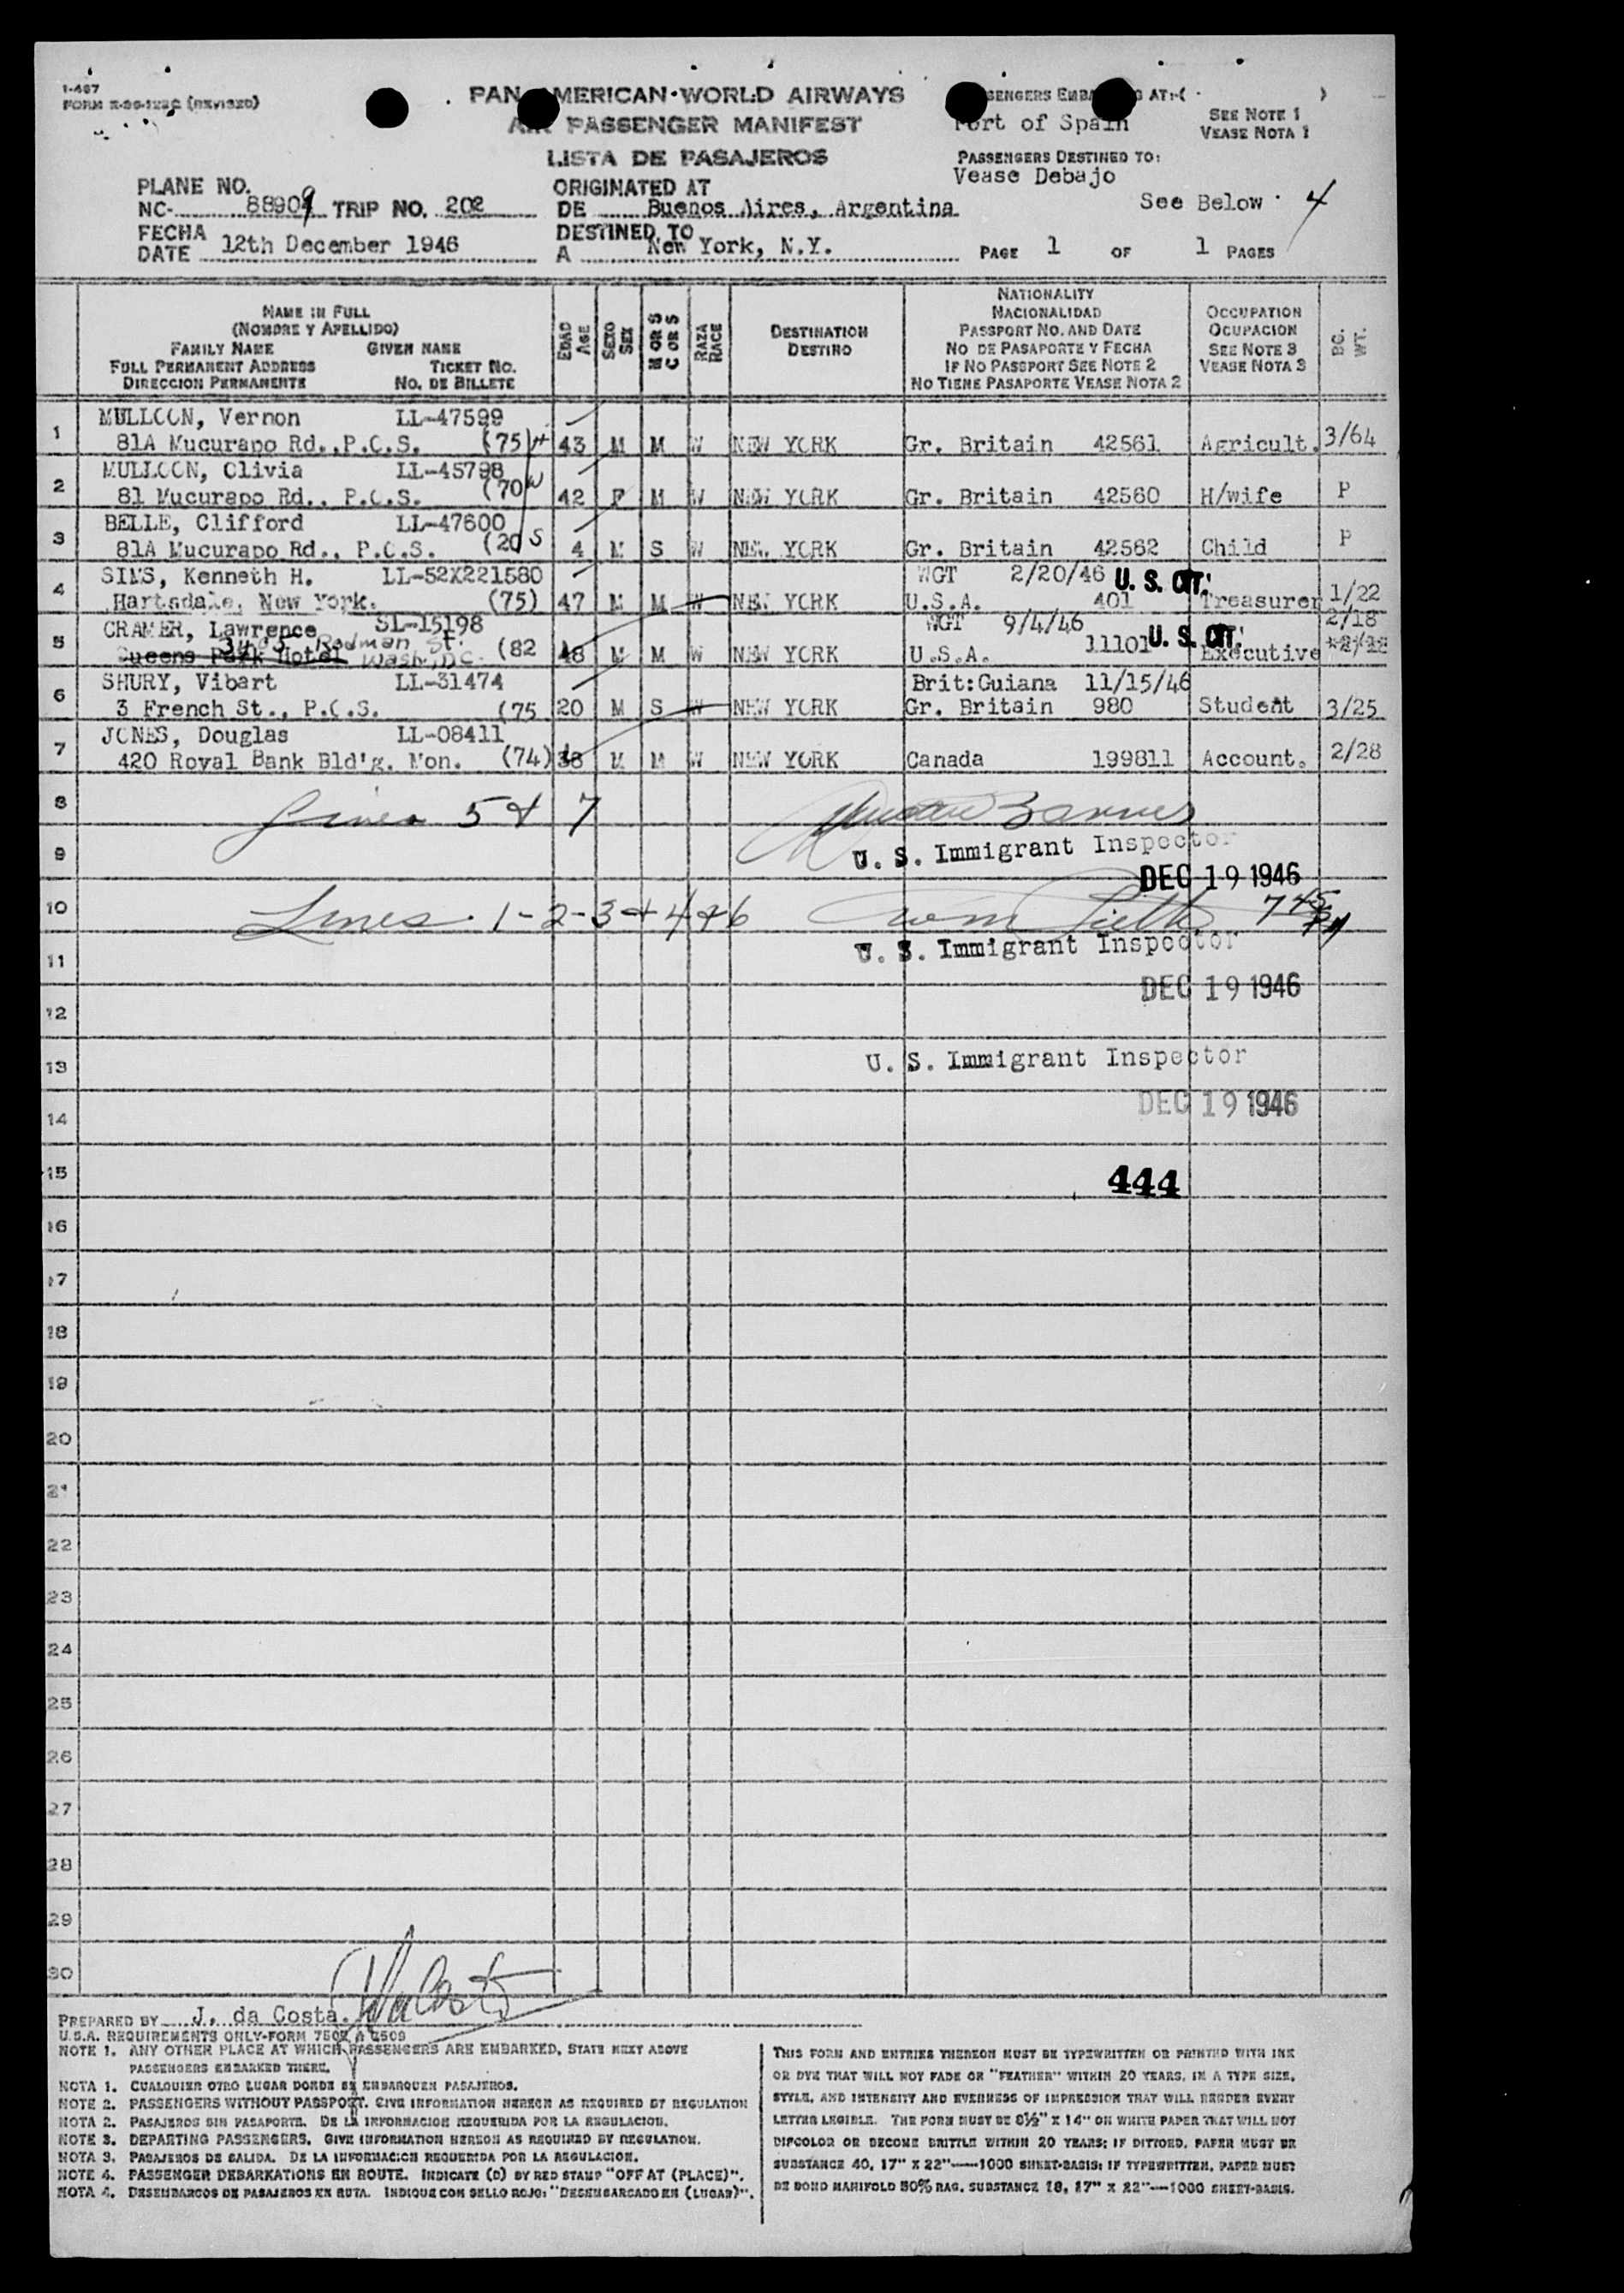 1-467
FORM R-99-122C (REVISED)
PAN AMERICAN WORLD AIRWAYS
AIR PASSENGER MANIFEST
LISTA DE PASAJEROS
PASSENGERS EMBARKING AT:-( )
Port of Spain
SEE NOTE 1
VEASE NOTA 1
PASSENGERS DESTINED TO:
Vease Debajo
See Below 4
PLANE NO.
NC- 88909 TRIP NO. 202
FECHA
DATE 12th December 1946
ORIGINATED AT
DE Buenos Aires, Argentina
DESTINED TO
A New York, N.Y.
PAGE 1 OF 1 PAGES
NAME IN FULL
(NOMBRE Y APELLIDO)
FAMILY NAME GIVEN NAME
FULL PERMANENT ADDRESS TICKET NO.
DIRECCION PERMANENTE NO. DE BILLETE
EDAD
AGE
SEXO
SEX
M OR S
C OR S
RAZA
RACE
DESTINATION
DESTINO
NATIONALITY
NACIONALIDAD
PASSPORT NO. AND DATE
NO DE PASAPORTE Y FECHA
IF NO PASSPORT SEE NOTE 2
NO TIENE PASAPORTE VEASE NOTA 2
OCCUPATION
OCUPACION
SEE NOTE 3
VEASE NOTA 3
BG.
WT.
1 MULLOON, Vernon LL-47599
81A Mucurapo Rd.,P.O.S. (75) H 43 M M W NEW YORK Gr. Britain 42561 Agricult. 3/64
2 MULLOON, Olivia LL-45798
81 Mucurapo Rd., P.O.S. (70 W 42 F M W NEW YORK Gr. Britain 42560 H/wife P
3 BELLE, Clifford LL-47600
81A Mucurapo Rd., P.O.S. (20 S 4 M S W NEW YORK Gr. Britain 42562 Child P
4 SIMS, Kenneth H. LL-52X221580 WGT 2/20/46 U. S. CIT.
Hartsdale, New York. (75) 47 M M W NEW YORK U.S.A. 401 Treasurer 1/22
5 CRAMER, Lawrence SL-15198 WGT 9/4/46 U. S. CIT. 2/18
Rodman St.
Queens Park Hotel Wash, DC. (82 48 M M W NEW YORK U.S.A. 11101 Executive
6 SHURY, Vibart LL-31474 Brit:Guiana 11/15/46
3 French St., P.O.S. (75 20 M S W NEW YORK Gr. Britain 980 Student 3/25
7 JONES, Douglas LL-08411
420 Royal Bank Bld'g. Mon. (74) 38 M M W NEW YORK Canada 199811 Account. 2/28
8 Lines 5 & 7
9 U. S. Immigrant Inspector
DEC 19 1946
10 Lines 1-2-3 & 4 & 6 7 45 PM
11 U. S. Immigrant Inspector
DEC 19 1946
12
13 U. S. Immigrant Inspector
14 DEC 19 1946
15 444
16
17
18
19
20
21
22
23
24
25
26
27
28
29
30
PREPARED BY J. da Costa.
U.S.A. REQUIREMENTS ONLY-FORM 7507 A 7509
NOTE 1. ANY OTHER PLACE AT WHICH PASSENGERS ARE EMBARKED, STATE NEXT ABOVE
PASSENGERS EMBARKED THERE.
NOTA 1. CUALQUIER OTRO LUGAR DONDE SE EMBARQUEN PASAJEROS.
NOTE 2. PASSENGERS WITHOUT PASSPORT. GIVE INFORMATION HEREON AS REQUIRED BY REGULATION
NOTA 2. PASAJEROS SIN PASAPORTE. DE LA INFORMACION REQUERIDA POR LA REGULACION.
NOTE 3. DEPARTING PASSENGERS. GIVE INFORMATION HEREON AS REQUIRED BY REGULATION.
NOTA 3. PASAJEROS DE SALIDA. DE LA INFORMACION REQUERIDA POR LA REGULACION.
NOTE 4. PASSENGER DEBARKATIONS EN ROUTE. INDICATE (D) BY RED STAMP "OFF AT (PLACE)".
NOTA 4. DESEMBARCOS DE PASAJEROS EN RUTA. INDIQUE CON SELLO ROJO: "DESEMBARCADO EN (LUGAR)".
THIS FORM AND ENTRIES THEREON MUST BE TYPEWRITTEN OR PRINTED WITH INK
OR DYE THAT WILL NOT FADE OR "FEATHER" WITHIN 20 YEARS, IN A TYPE SIZE,
STYLE, AND INTENSITY AND EVENNESS OF IMPRESSION THAT WILL RENDER EVERY
LETTER LEGIBLE. THE FORM MUST BE 8½" X 14" ON WHITE PAPER THAT WILL NOT
DISCOLOR OR BECOME BRITTLE WITHIN 20 YEARS; IF DITTOED, PAPER MUST BE
SUBSTANCE 40, 17" X 22"—1000 SHEET-BASIS; IF TYPEWRITTEN, PAPER MUST
BE BOND MANIFOLD 50% RAG, SUBSTANCE 18, 17" X 22"—1000 SHEET-BASIS.